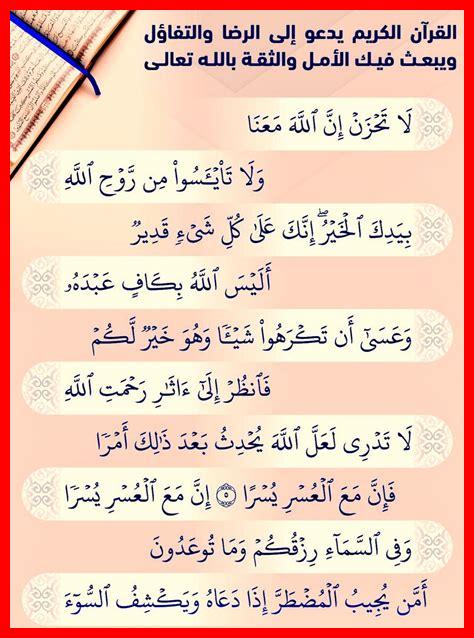 القرآن الكريم يدعو إلى الرضا والتفاؤل
ويبعث فيك الأمل والثقة بالله تعالى
لَا تَحْزَنْ إِنَّ ٱللَّهَ مَعَنَا
وَلَا تَا۟يْـَٔسُوا۟ مِن رَّوْحِ ٱللَّهِ
بِيَدِكَ ٱلْخَيْرُ ۖ إِنَّكَ عَلَىٰ كُلِّ شَىْءٍ قَدِيرٌ
أَلَيْسَ ٱللَّهُ بِكَافٍ عَبْدَهُۥ
وَعَسَىٰٓ أَن تَكْرَهُوا۟ شَيْـًٔا وَهُوَ خَيْرٌ لَّكُمْ
فَٱنظُرْ إِلَىٰٓ ءَاثَـٰرِ رَحْمَتِ ٱللَّهِ
لَا تَدْرِى لَعَلَّ ٱللَّهَ يُحْدِثُ بَعْدَ ذَٰلِكَ أَمْرًا
فَإِنَّ مَعَ ٱلْعُسْرِ يُسْرًا ۝٥ إِنَّ مَعَ ٱلْعُسْرِ يُسْرًا
وَفِى ٱلسَّمَآءِ رِزْقُكُمْ وَمَا تُوعَدُونَ
أَمَّن يُجِيبُ ٱلْمُضْطَرَّ إِذَا دَعَاهُ وَيَكْشِفُ ٱلسُّوٓءَ